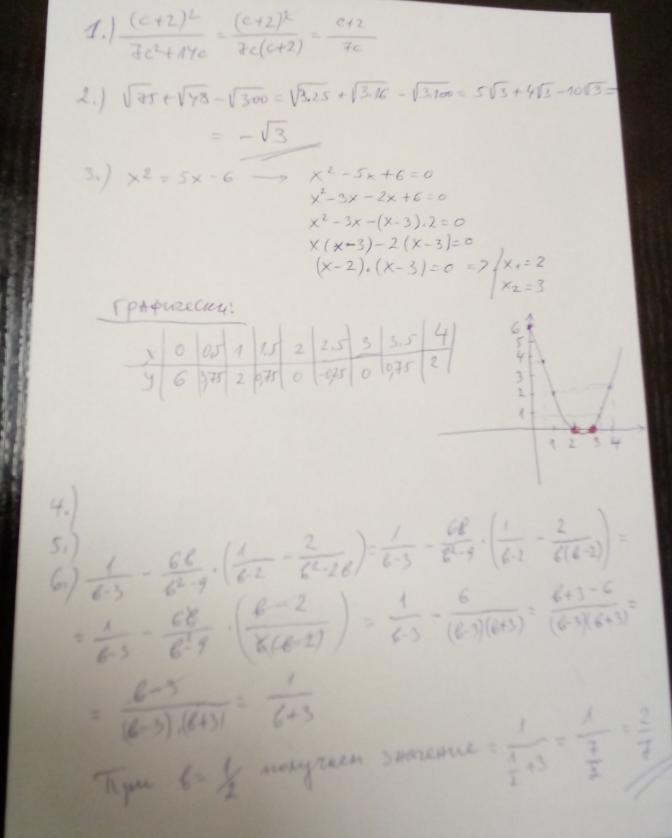 1.) (c+2)²/(7c²+14c) = (c+2)²/(7c(c+2)) = (c+2)/(7c)
2.) √75 + √48 - √300 = √3.25 + √3.16 - √3.100 = 5√3 + 4√3 - 10√3 =
= -√3
3.) x² = 5x - 6 → x² - 5x + 6 = 0
x² - 3x - 2x + 6 = 0
x² - 3x - (x-3).2 = 0
x(x-3) - 2(x-3) = 0
(x-2).(x-3) = 0 => x₁ = 2
x₂ = 3
Графически:
x | 0 | 0,5 | 1 | 1,5 | 2 | 2.5 | 3 | 3.5 | 4
y | 6 | 3,75 | 2 | 0,75 | 0 | -0,75 | 0 | 0,75 | 2
6
5
4
3
2
1
1 2 3 4
4.)
5.)
6.) 1/(в-3) - 6в/(в²-9) · (1/(в-2) - 2/(в²-2в)) = 1/(в-3) - 6в/(в²-9) · (1/(в-2) - 2/(в(в-2))) =
= 1/(в-3) - 6в/(в²-9) · ((в-2)/(в(в-2))) = 1/(в-3) - 6/((в-3)(в+3)) = (в+3-6)/((в-3)(в+3)) =
= (в-3)/((в-3).(в+3)) = 1/(в+3)
При в = 1/2 получаем значение = 1/(1/2+3) = 1/(7/2) = 2/7